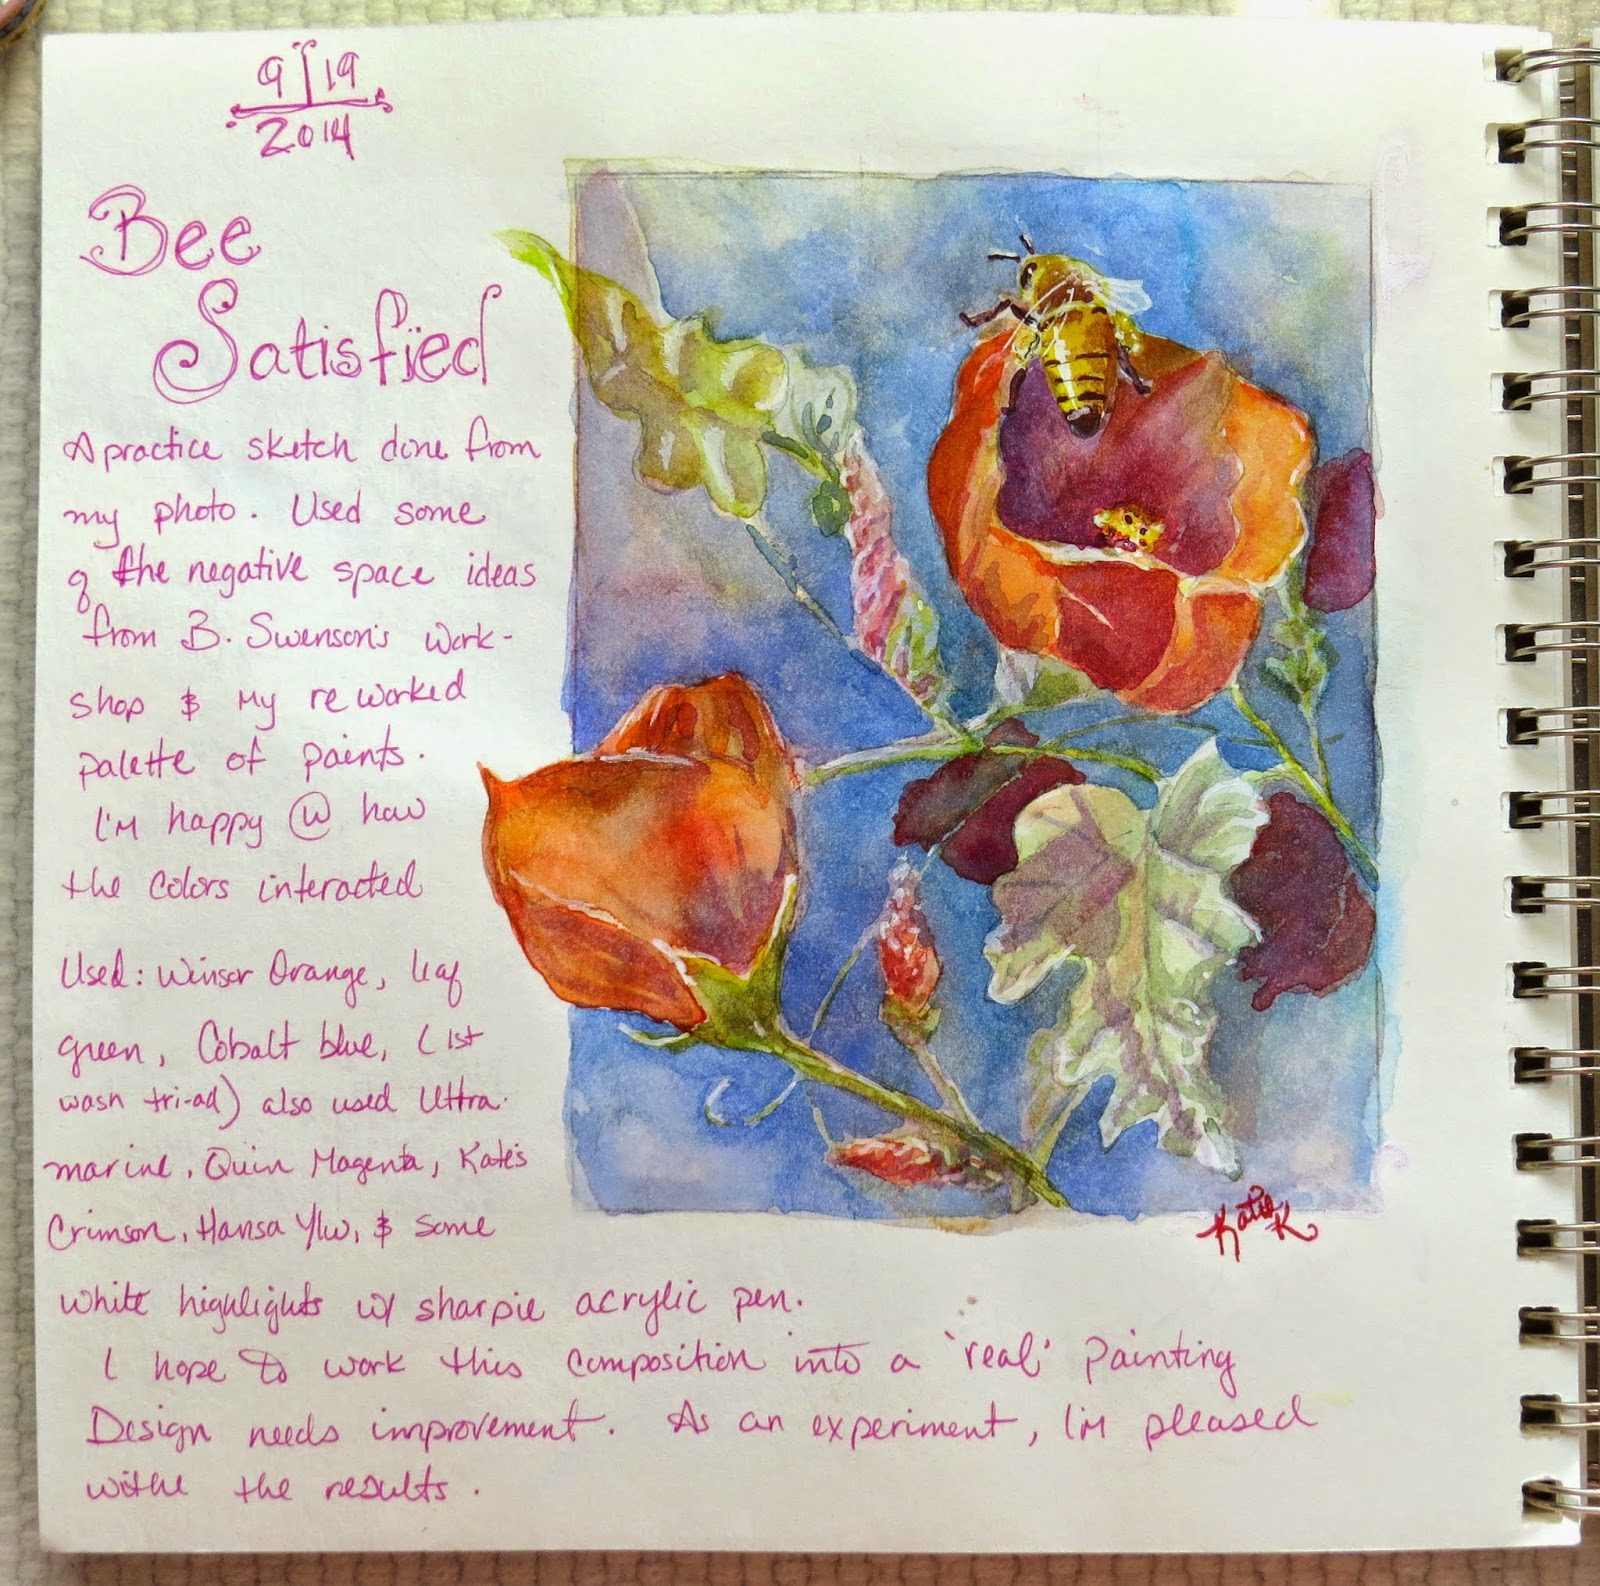 9 19
2014
Bee
Satisfied
A practice sketch done from
my photo. Used some
of the negative space ideas
from B. Swenson's work-
shop & my reworked
palette of paints.
I'm happy @ how
the colors interacted
Used: Winsor Orange, leaf
green, Cobalt blue, (1st
wash tri-ad) also used Ultra-
marine, Quin Magenta, Kate's
Crimson, Hansa Ylw, & some
white highlights w/ sharpie acrylic pen.
I hope to work this composition into a 'real' painting
Design needs improvement. As an experiment, I'm pleased
withe the results.
Katie K